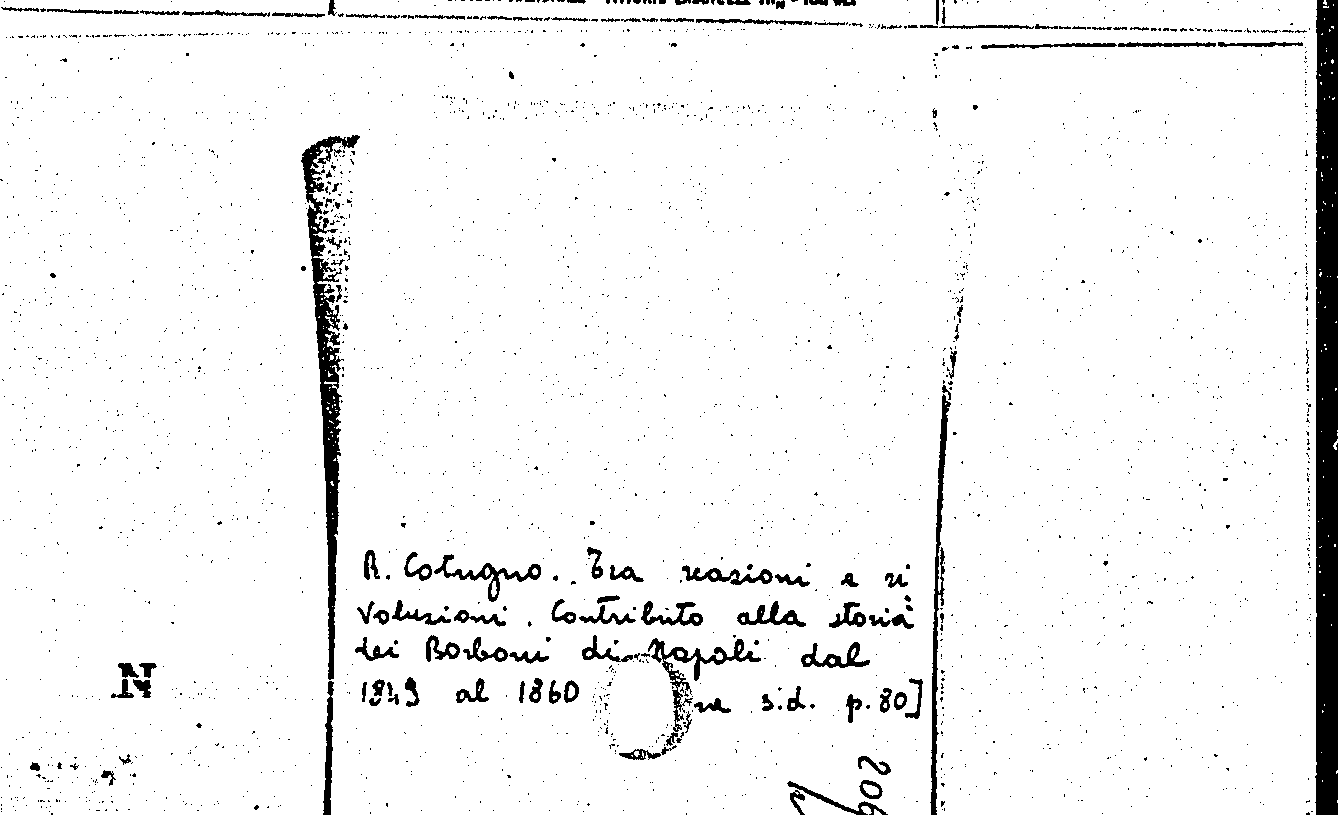 R. Cotugno. Tra reazioni e ri
voluzioni. Contributo alla storia
dei Borboni di Napoli dal
1849 al 1860 s.d. p. 80]
N
206